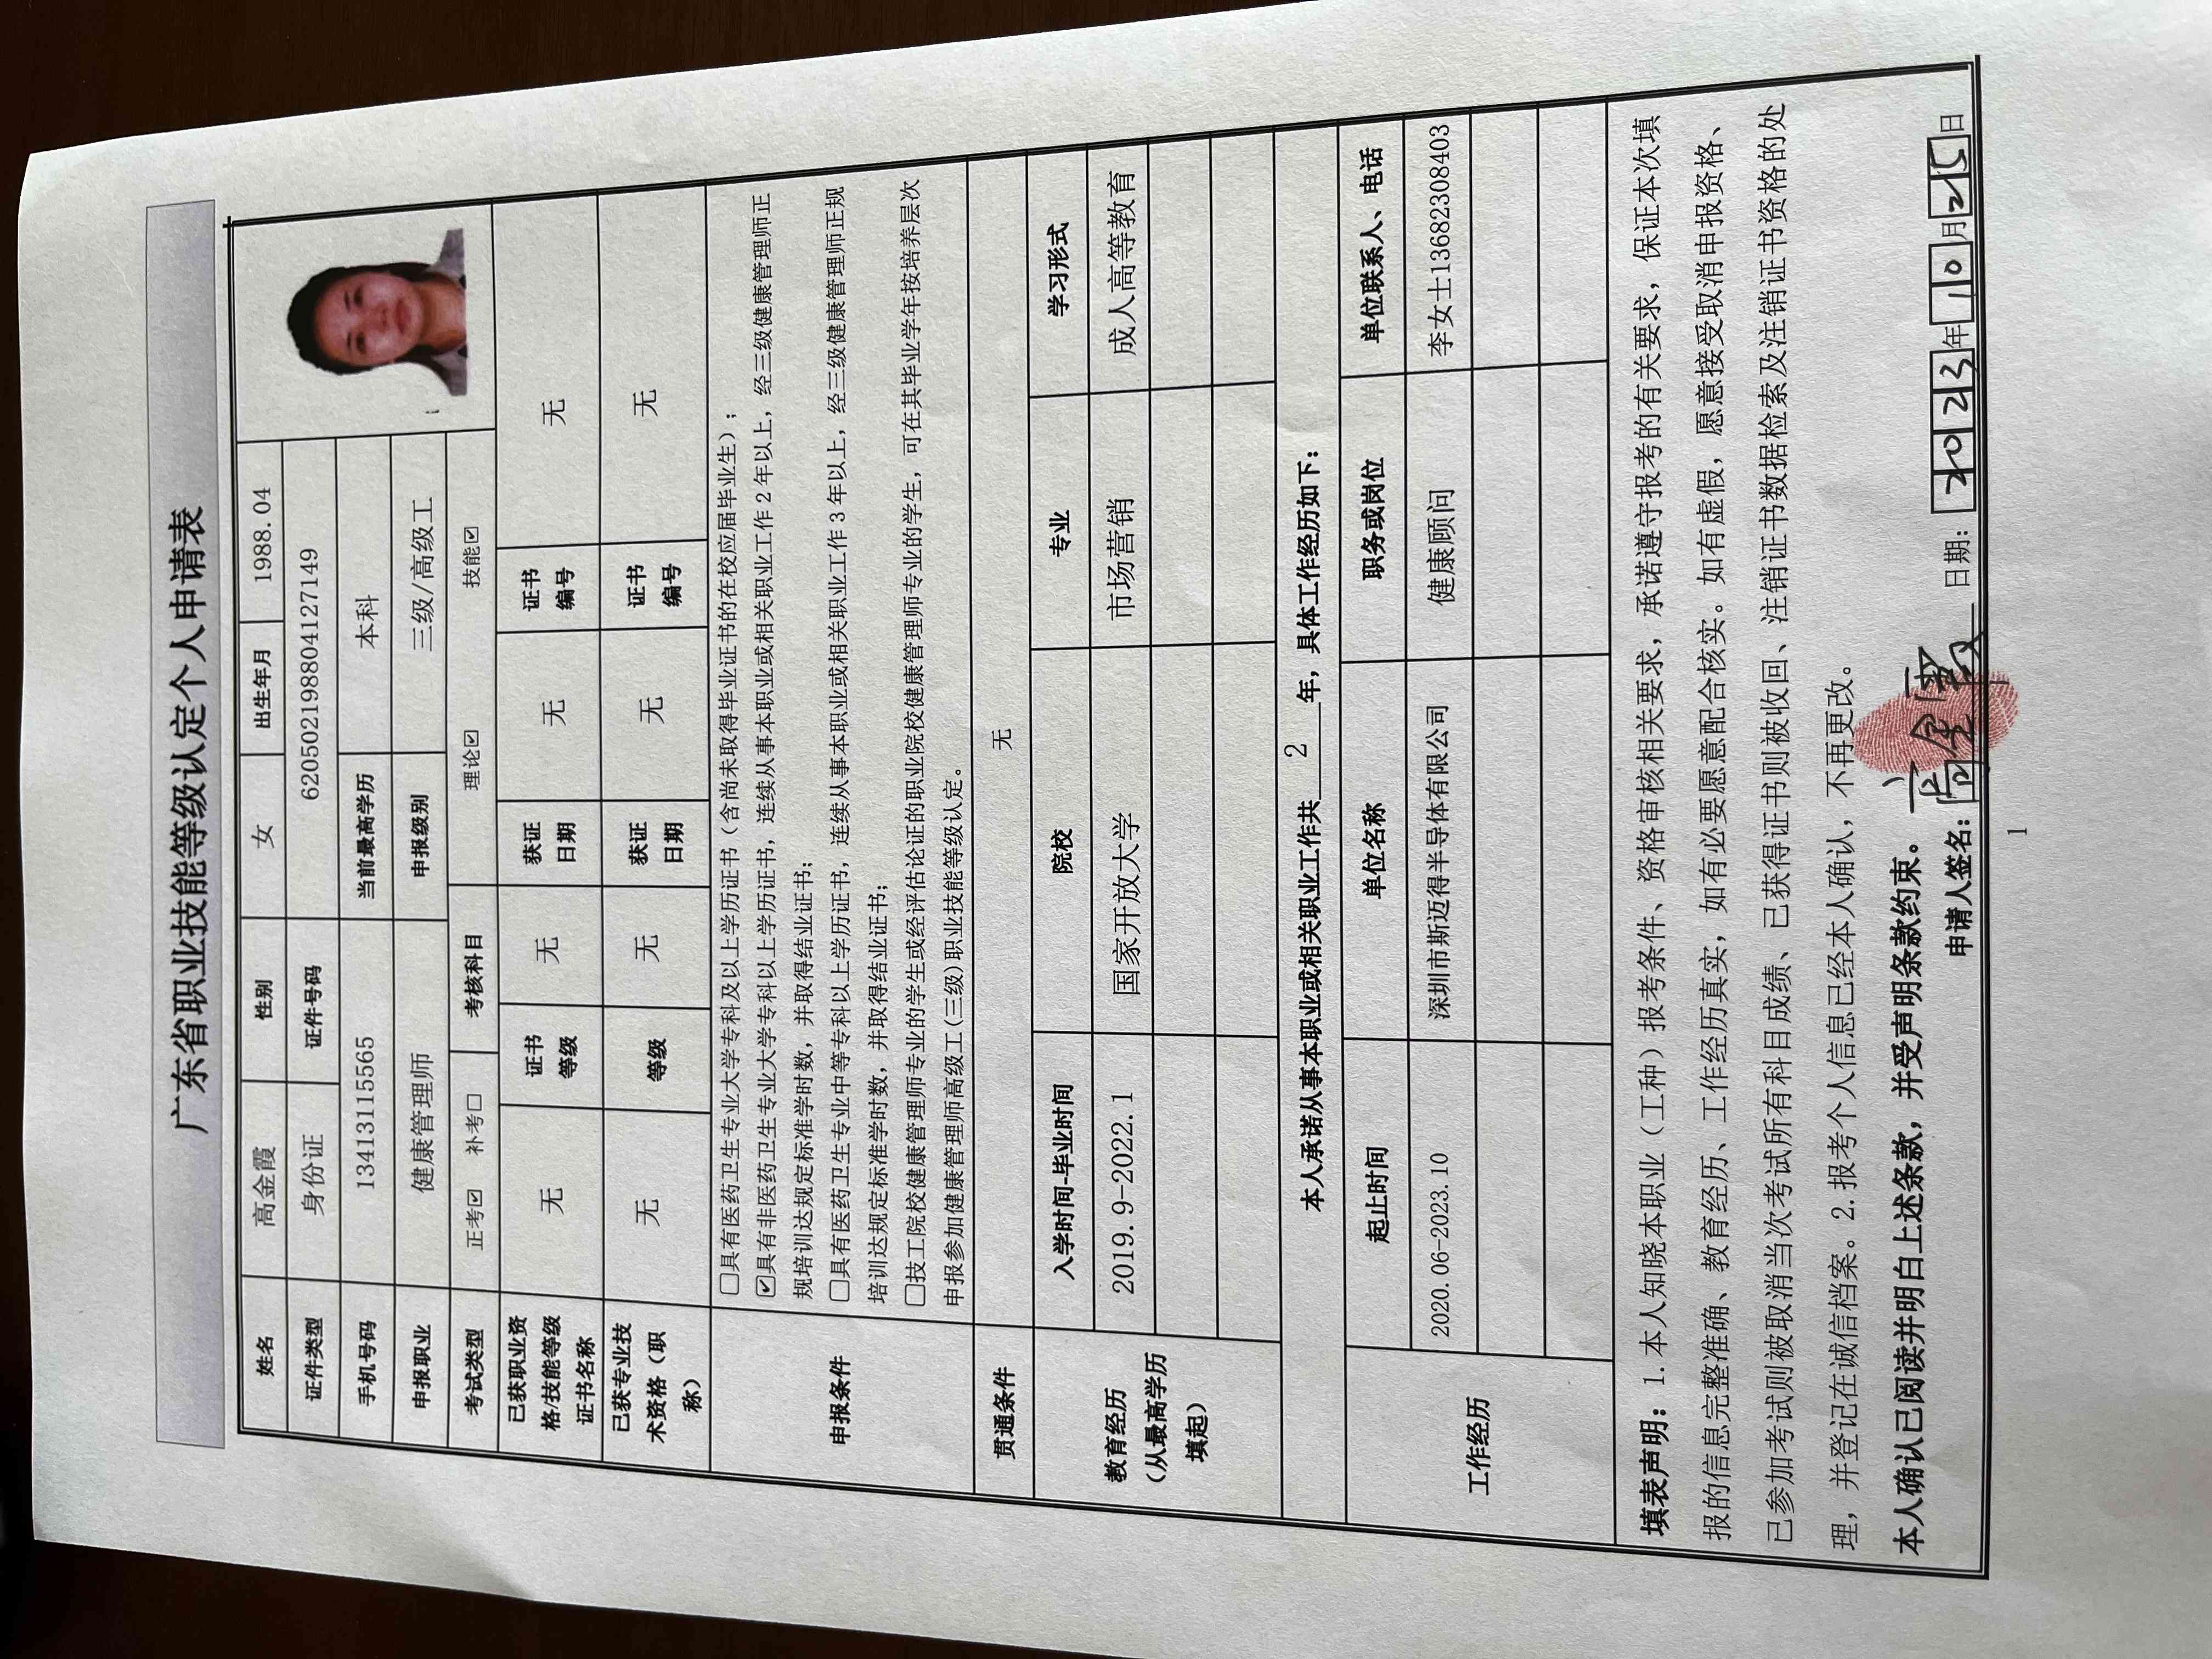 广东省职业技能等级认定个人申请表
姓名 高金霞 性别 女 出生年月 1988.04
证件类型 身份证 证件号码 620502198804127149
手机号码 13413115565 当前最高学历 本科
申报职业 健康管理师 申报级别 三级/高级工
考试类型 正考☑ 补考□ 考核科目 理论☑ 技能☑
已获职业资格/技能等级证书名称 无 证书等级 无 获证日期 无 证书编号 无
已获专业技术资格（职称） 无 等级 无 获证日期 无 证书编号 无
申报条件
□具有医药卫生专业大学专科及以上学历证书（含尚未取得毕业证书的在校应届毕业生）；
☑具有非医药卫生专业大学专科以上学历证书，连续从事本职业或相关职业工作 2 年以上，经三级健康管理师正
规培训达规定标准学时数，并取得结业证书；
□具有医药卫生专业中等专科以上学历证书，连续从事本职业或相关职业工作 3 年以上，经三级健康管理师正规
培训达规定标准学时数，并取得结业证书；
□技工院校健康管理师专业的学生或经评估论证的职业院校健康管理师专业的学生，可在其毕业学年按培养层次
申报参加健康管理师高级工(三级)职业技能等级认定。
贯通条件 无
教育经历（从最高学历填起）
入学时间-毕业时间 院校 专业 学习形式
2019.9-2022.1 国家开放大学 市场营销 成人高等教育
本人承诺从事本职业或相关职业工作共 2 年，具体工作经历如下：
工作经历
起止时间 单位名称 职务或岗位 单位联系人、电话
2020.06-2023.10 深圳市斯迈得半导体有限公司 健康顾问 李女士13682308403
填表声明：1.本人知晓本职业（工种）报考条件、资格审核相关要求，承诺遵守报考的有关要求，保证本次填
报的信息完整准确、教育经历、工作经历真实，如有必要愿意配合核实。如有虚假，愿意接受取消申报资格、
已参加考试则被取消当次考试所有科目成绩、已获得证书则被收回、注销证书数据检索及注销证书资格的处
理，并登记在诚信档案。2.报考个人信息已经本人确认，不再更改。
本人确认已阅读并明白上述条款，并受声明条款约束。
申请人签名：高金霞 日期：2023年10月25日
1